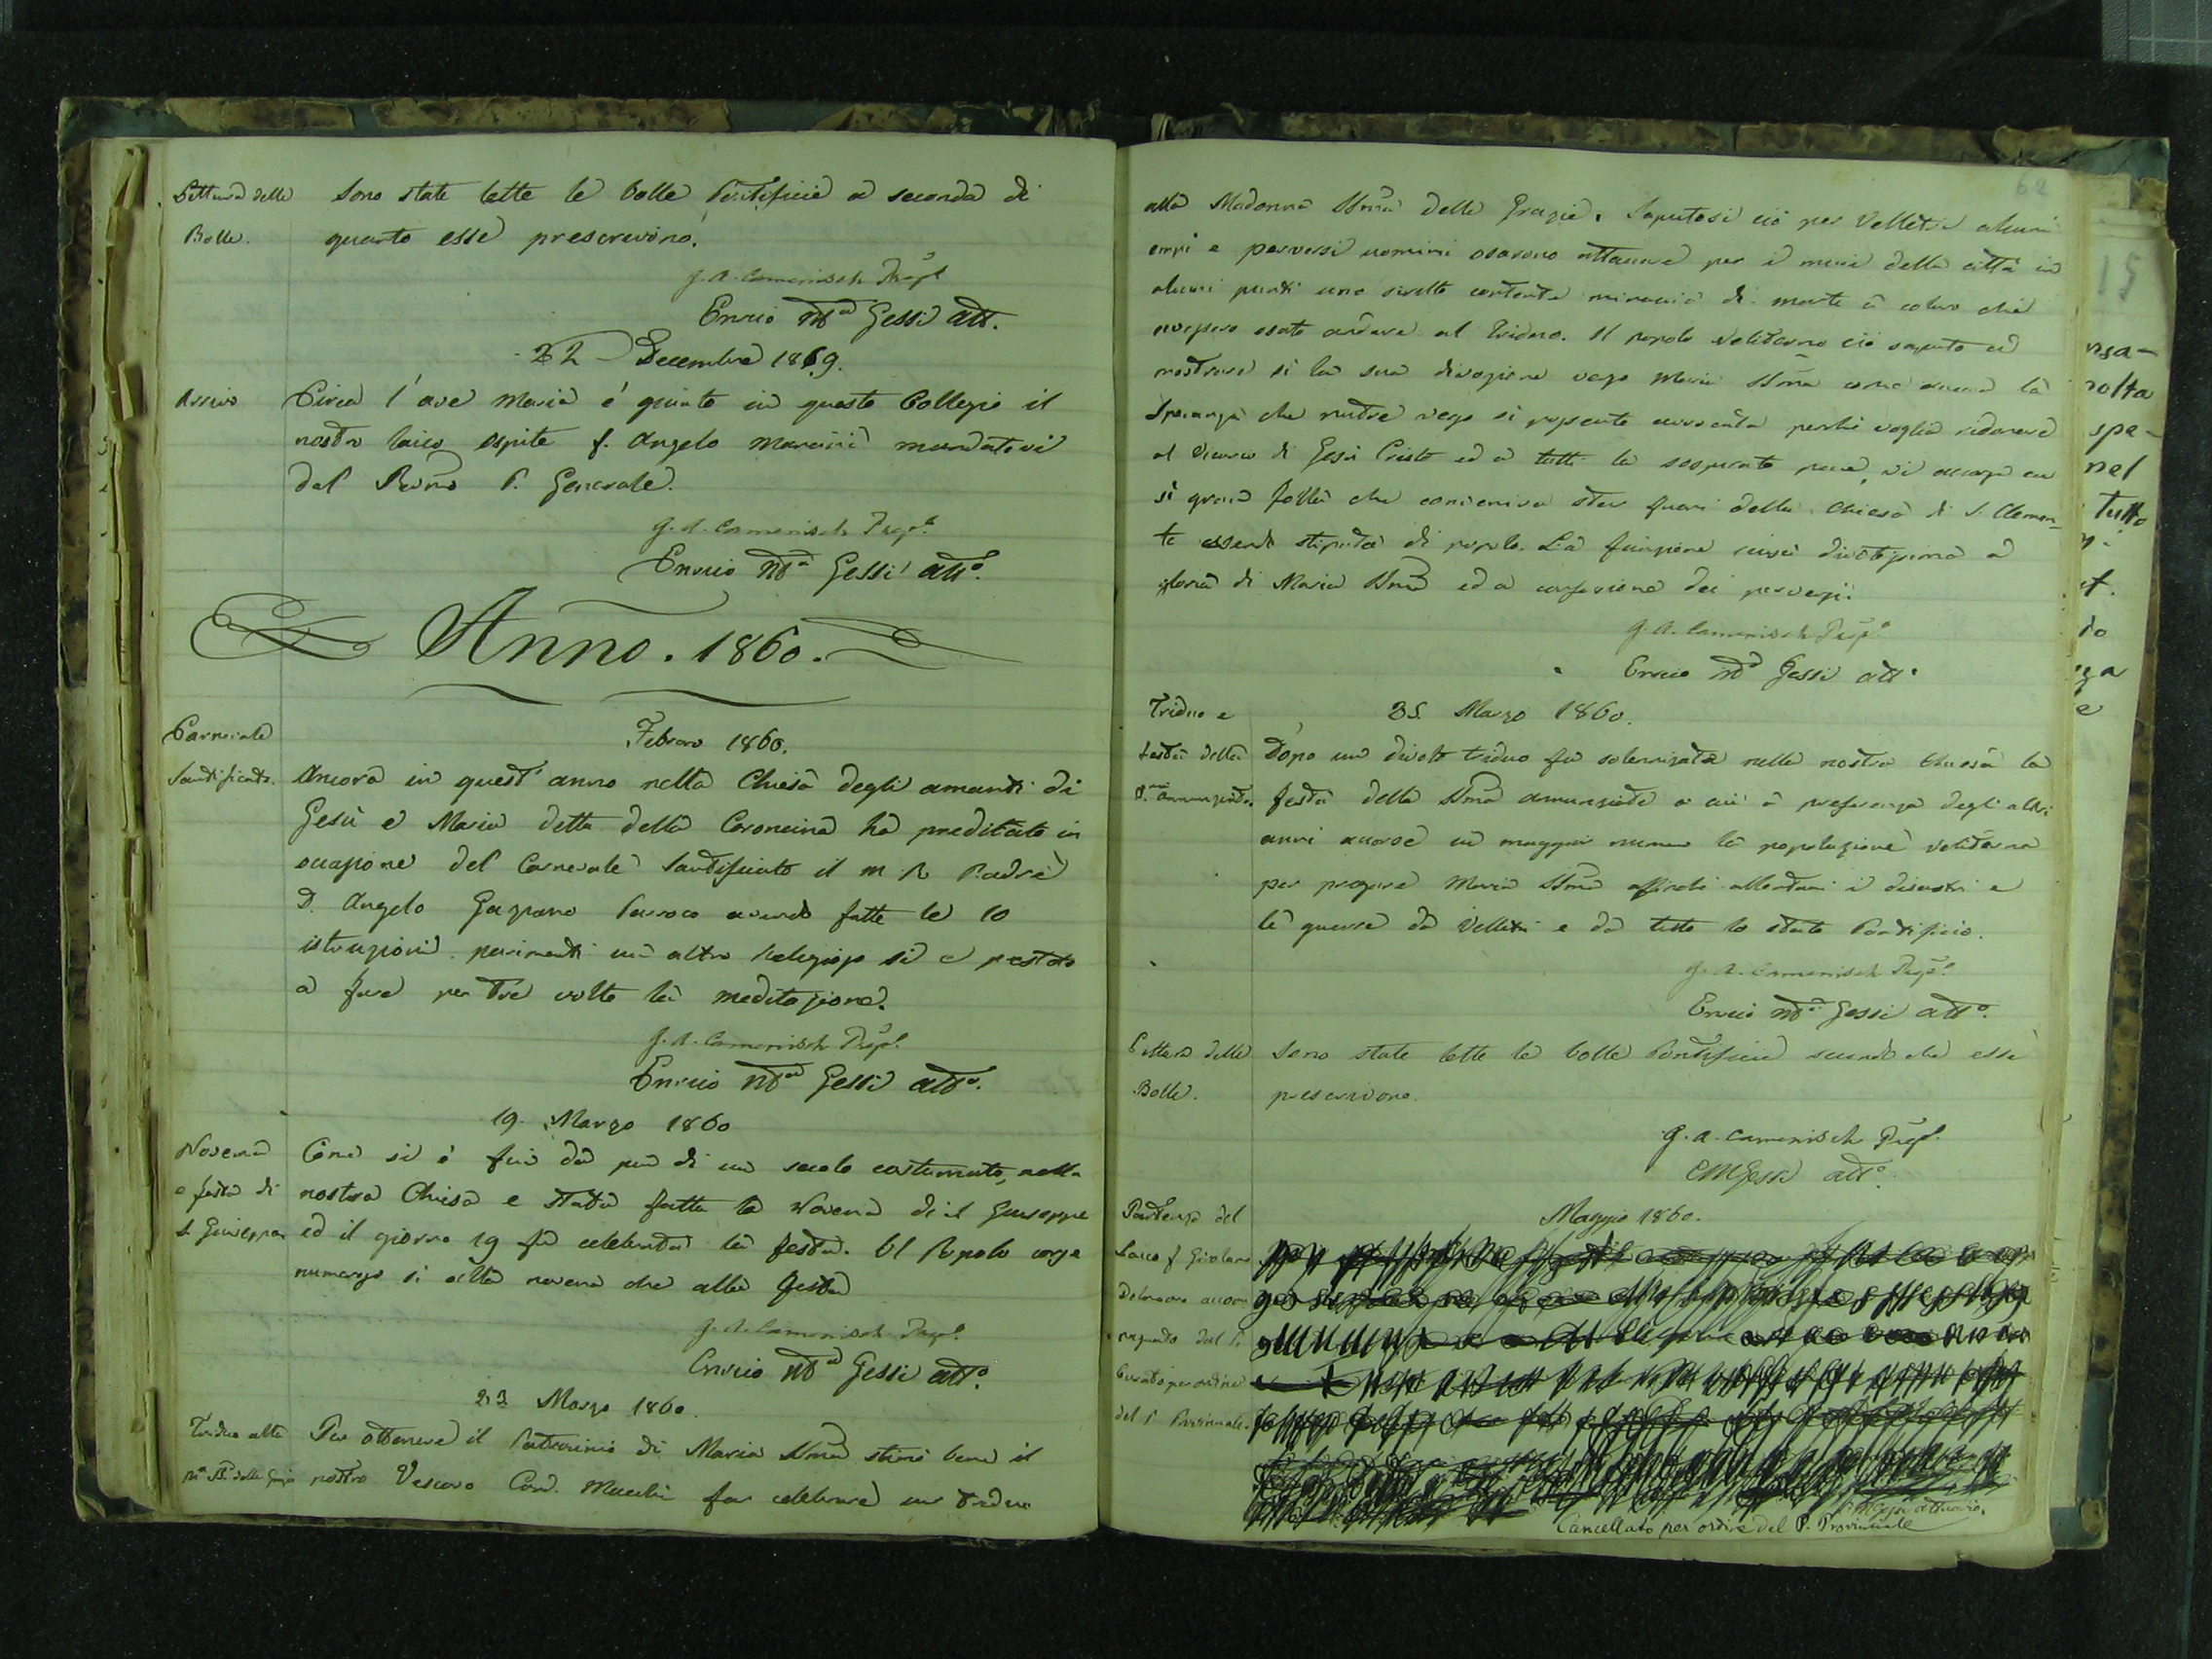 Lettura delle Sono state lette le bolle Pontificie a seconda di
Bolle. quanto esse prescrivono.
G. A. Camenisch Prep.
Enrico Ma Gessi att.
22 Decembre 1869.
Arrivo Circa l'ave Maria è giunto in questo Collegio il
nostro laico ospite f. Angelo Mancini mandatovi
dal Rmo P. Generale.
G. A. Camenisch Prep.
Enrico Ma Gessi atto.
Anno. 1860.
Carnevale
Febraro 1860.
Santificato. Ancora in quest'anno nella Chiesa degli amanti di
Gesù e Maria detta della Coroncina ha predicato in
occasione del Carnevale Santificato il M R Padre
D. Angelo Parroco avendo fatte le 10
istruzioni. parimenti un altro Religioso si è prestato
a fare per tre volte la meditazione.
G. A. Camenisch Prep.
Enrico Ma Gessi atto.
19 Marzo 1860
Novena Come si è fin da più di un secolo costumato, nella
e festa di nostra Chiesa e stata fatta la Novena di S. Giuseppe
S. Giuseppe ed il giorno 19 fu celebrata la festa. Il Popolo corse
numeroso sì alla novena che alla festa
G. A. Camenisch Prep.
Enrico Ma Gessi atto.
23 Marzo 1860.
Triduo alla Per ottenere il Patrocinio di Maria SSma stimò bene il
Ma SS. delle Grazie nostro Vescovo Card. Macchi far celebrare un triduo
62
alla Madonna SSma delle Grazie. Saputosi ciò per Velletri alcuni
empi e perversi uomini osarono attaccare per i muri della città in
alcuni punti uno scritto contenente minaccie di morte a coloro che
avessero osato andare al triduo. Il popolo veliterno ciò saputo a
mostrare sì la sua divozione verso Maria SSma come ancora la
speranza che nutre verso sì possente avvocata perchè voglia ridonare
al Vicario di Gesù Cristo ed a tutti la sospirata pace, vi accorse in
sì gran folla che conveniva star fuori della Chiesa di S. Clemen-
te essendo stipata di popolo. La funzione riuscì divotissima a
gloria di Maria SSma ed a confusione dei perversi.
G. A. Camenisch Prep.
Enrico Ma Gessi atto
Triduo e 25. Marzo 1860.
festa della Dopo un divoto triduo fu solennizzata nella nostra Chiesa la
SS. Annunziata. festa della SSma Annunziata a cui a preferenza degli altri
anni accorse in maggior numero la popolazione veliterna
per pregare Maria SSma affinchè allontani i disastri e
le guerre da Velletri e da tutto lo stato Pontificio.
G. A. Camenisch Prep.
Enrico Ma Gessi atto.
Lettura delle Sono state lette le bolle Pontificie secondo che esse
Bolle. prescrivono.
G. A. Camenisch Prep.
E M Gessi atto.
Partenza del Maggio 1860.
Laico f Girolamo
accom
pagnato dal P.
Curato per ordine
del P. Provinciale.
Gessi attuario.
Cancellato per ordine del P. Provinciale
15
nsa-
rolta
spe-
nel
tutto